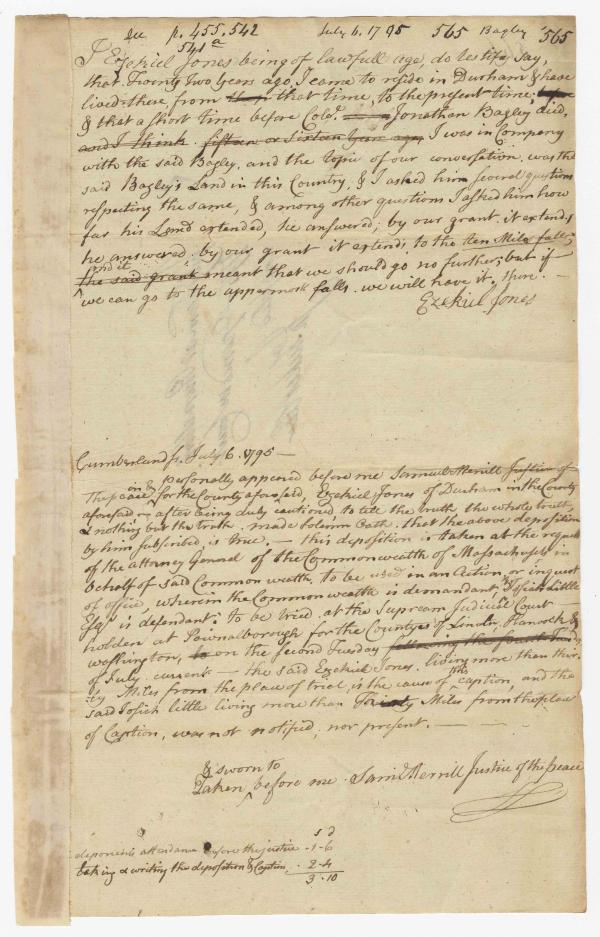 See p. 455. 542 July 6. 1795 565 Bagley 565
541 a
I Ezekiel Jones being of lawfull age, do testify & say,
that Twenty Two years ago, I came to reside in Durham & have
lived there, from that time, to the present time,
& that a short time before Colo. Jonathan Bagley died,
and I think fifteen or Sixteen Years ago, I was in Company
with the said Bagley, and the topic of our conversation, was the
said Bagley's Land in this Country, & I asked him several questions
respecting the same, & among other questions I asked him how
far his Land extended, he answered; by our grant it extends
he answered; by our grant it extends to the ten Mile falls,
and it
the said grant meant that we should go no further; but if
we can go to the uppermost falls. we will have it there. —
Ezekiel Jones
Cumberland ss. July 6. 1795 —
personally appeared before me Samuel Merrill Justice of
in &
The peace, for the County aforesaid, Ezekiel Jones of Durham in the County
aforesaid — after being duly cautioned to tell the truth the whole truth,
& nothing but the truth. made Solemn Oath. that the above deposition
by him subscribed is true. — this deposition is taken at the request
of the attorney General of the Commonwealth of Massachusetts in
behalf of said Commonwealth, to be used in an Action, or inquest
of office, wherein the Commonwealth is demandant, & Josiah Little
Esqr is defendant: to be tried at the Supream Judicial Court
holden at Pownalborough for the Countys of Lincoln, Hancock &
washington, on the second Tuesday
of July current — the said Ezekiel Jones. living more than thir-
ty Miles from the place of trial, is the cause of this caption, and the
said Josiah little living more than Twenty Miles from the place
of Caption, was not notified, nor present. —
& sworn to
Taken before me Saml Merrill Justice of the peace
s d
deponents attendance before the justice - 1 - 6
taking & writing the deposition & Caption - 2 - 4
3 . 10